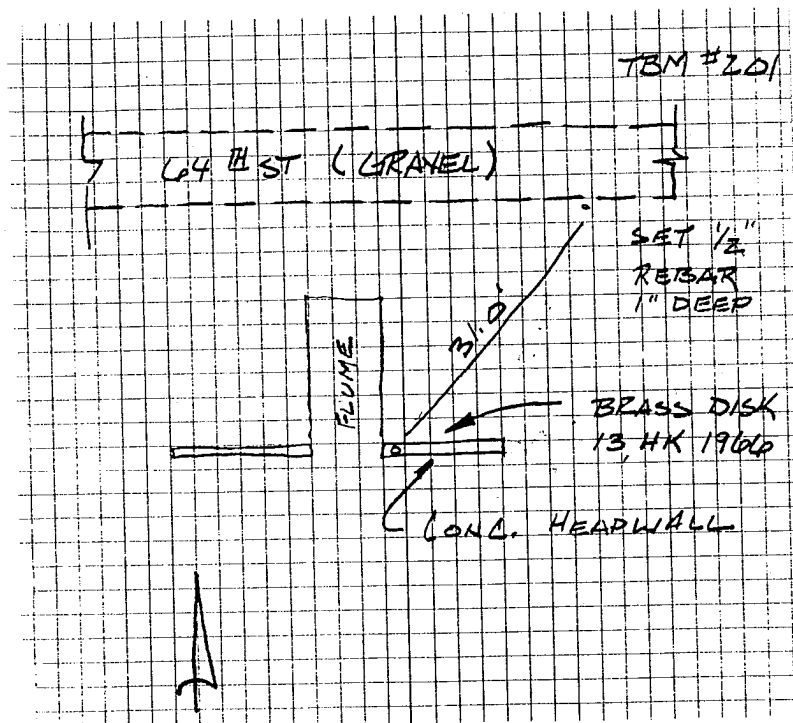 TBM #201
64TH ST (GRAVEL)
SET 1/2"
REBAR
1" DEEP
31.0'
FLUME
BRASS DISK
13 HK 1966
CONC. HEADWALL